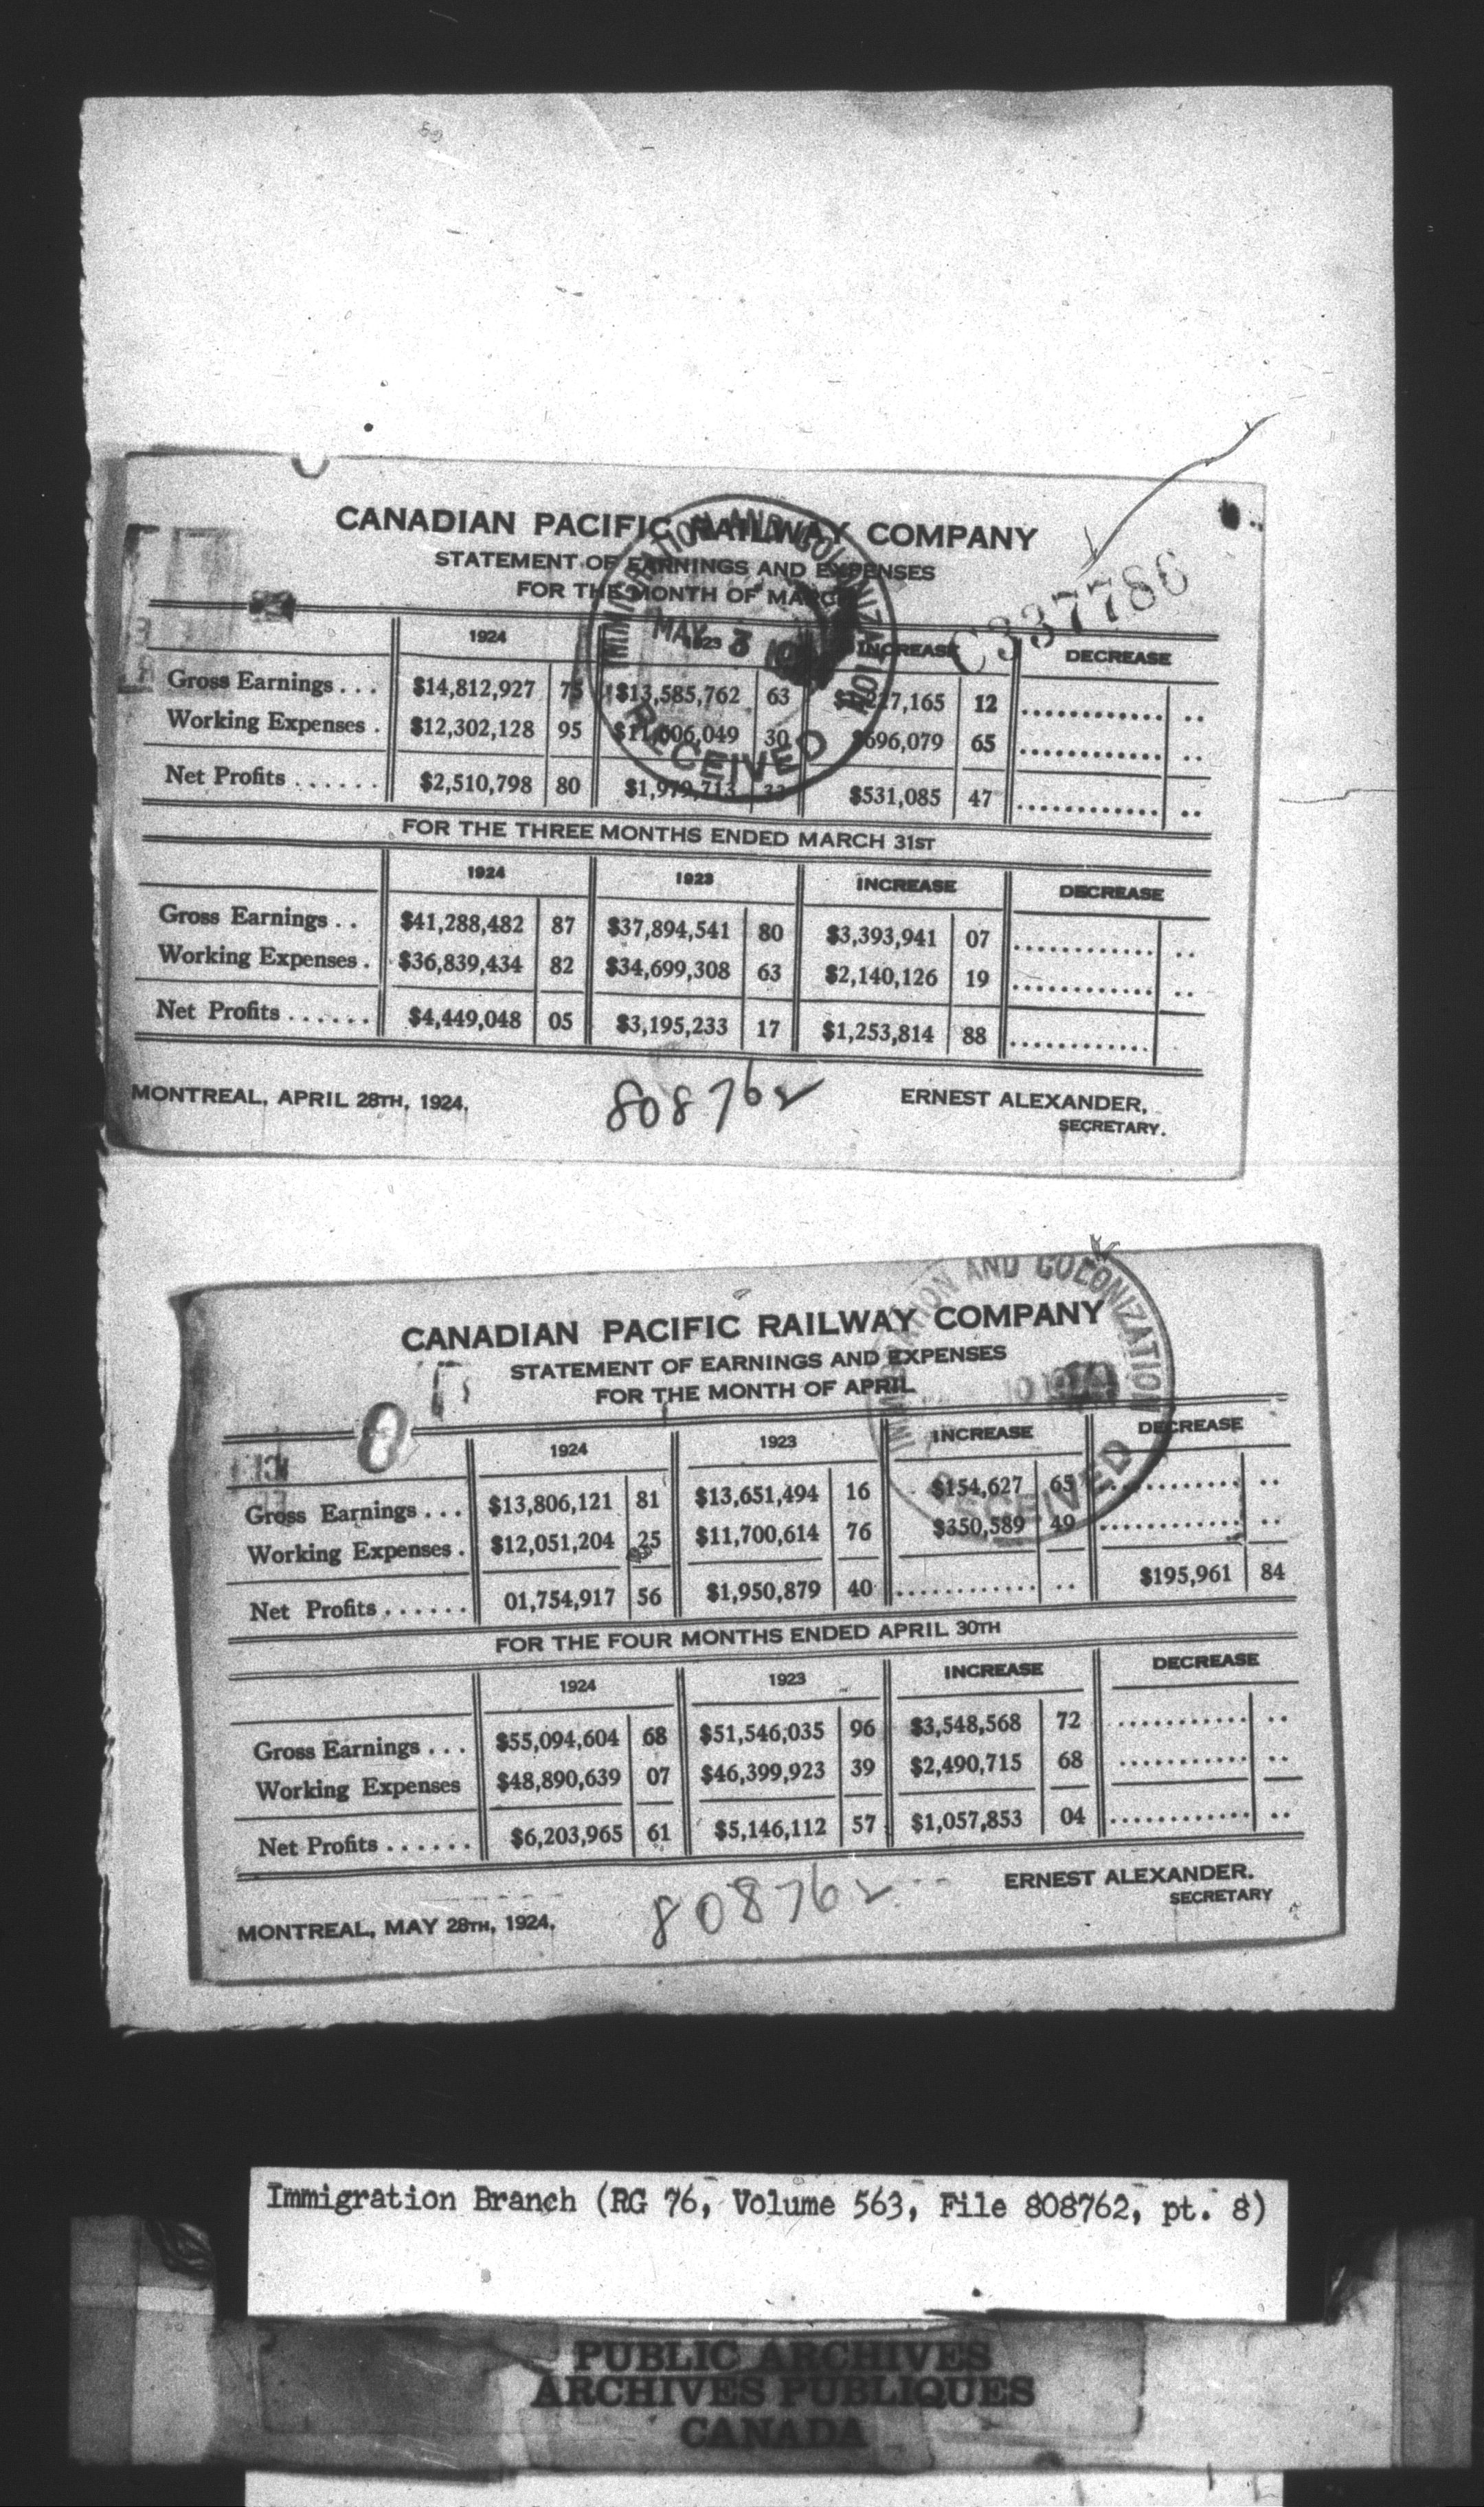 CANADIAN PACIFIC RAILWAY COMPANY
STATEMENT OF EARNINGS AND EXPENSES
FOR THE MONTH OF MARCH
IMMIGRATION AND COLONIZATION
MAY 3
RECEIVED
C337786
1924 1923 INCREASE DECREASE
Gross Earnings... $14,812,927 75 $13,585,762 63 $1,227,165 12 ............. ..
Working Expenses. $12,302,128 95 $11,606,049 30 $696,079 65 ............. ..
Net Profits...... $2,510,798 80 $1,979,713 33 $531,085 47 ............. ..
FOR THE THREE MONTHS ENDED MARCH 31ST
1924 1923 INCREASE DECREASE
Gross Earnings.. $41,288,482 87 $37,894,541 80 $3,393,941 07 ............. ..
Working Expenses. $36,839,434 82 $34,699,308 63 $2,140,126 19 ............. ..
Net Profits...... $4,449,048 05 $3,195,233 17 $1,253,814 88 ............. .
MONTREAL, APRIL 28TH, 1924.
808762
ERNEST ALEXANDER,
SECRETARY.
IMMIGRATION AND COLONIZATION
RECEIVED
CANADIAN PACIFIC RAILWAY COMPANY
STATEMENT OF EARNINGS AND EXPENSES
FOR THE MONTH OF APRIL
1924 1923 INCREASE DECREASE
Gross Earnings... $13,806,121 81 $13,651,494 16 $154,627 65 ............. ..
Working Expenses. $12,051,204 25 $11,700,614 76 $350,589 49 ............. ..
Net Profits...... 01,754,917 56 $1,950,879 40 ............. .. $195,961 84
FOR THE FOUR MONTHS ENDED APRIL 30TH
1924 1923 INCREASE DECREASE
Gross Earnings... $55,094,604 68 $51,546,035 96 $3,548,568 72 ............. ..
Working Expenses $48,890,639 07 $46,399,923 39 $2,490,715 68 ............. ..
Net Profits...... $6,203,965 61 $5,146,112 57 $1,057,853 04 ............. ..
ERNEST ALEXANDER.
SECRETARY
MONTREAL, MAY 28TH, 1924.
808762
Immigration Branch (RG 76, Volume 563, File 808762, pt. 8)
PUBLIC ARCHIVES
ARCHIVES PUBLIQUES
CANADA